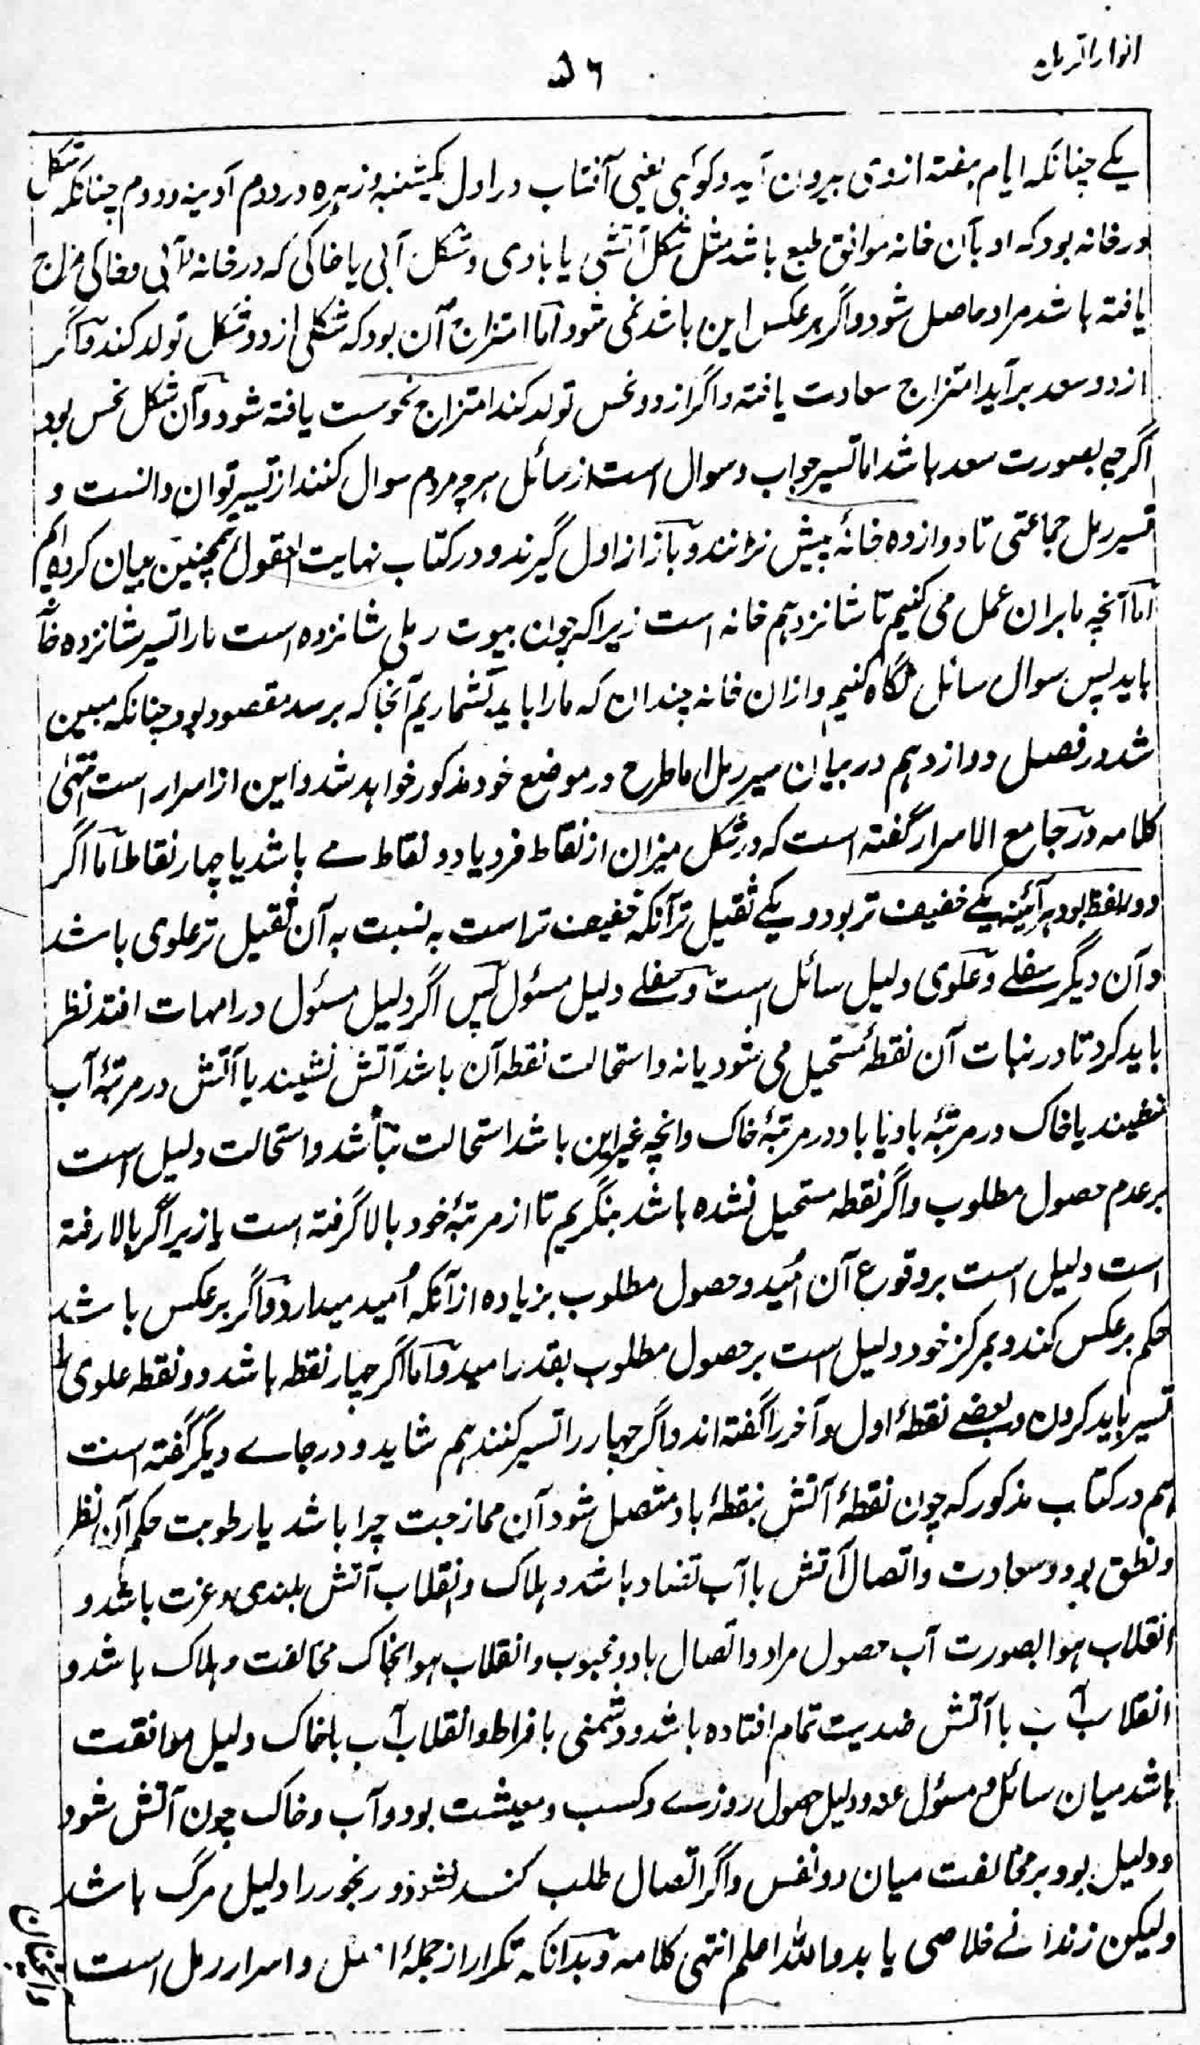 انوار الرمل
۵۶
یکے چنانکہ ایام ہفتہ ازوی بیرون آید و کوکبی یعنی آفتاب در اول یکشنبہ و زہرہ در دوم آدینہ و دوم چنانکہ شکل
در خانہ بود کہ او بآن خانہ موافق طبع باشد مثل شکل آتشی یا بادی و شکل آبی یا خاکی کہ در خانہ آبی و خاکی مزاج
یافتہ باشد مراد حاصل شود و اگر برعکس این باشد نمی شود اما امتزاج آن بود کہ شکلی از دو شکل تولد کند و اگر
از دو سعد برآید امتزاج سعادت یافتہ و اگر از دو نحس تولد کند امتزاج نحوست یافتہ شود و آن شکل نحس بود
اگرچہ بصورت سعد باشد اما تسییر جواب و سوال است از سائل ہر چہ مردم سوال کنند از تسییر توان دانست و
تسییر رمل جماعتی تا دوازدہ خانہ پیش نرانند و باز از اول گیرند و در کتاب نہایت العقول ہمچنین بیان کردہ ام
اما آنچہ ما بران عمل می کنیم تا شانزدہم خانہ است زیرا کہ چون بیوت رمل شانزدہ است ما را تسییر شانزدہ خانہ
باید پس سوال سائل نگاہ کنیم و ازان خانہ چندان کہ ما را باید بشماریم آنجا کہ برسد مقصود بود چنانکہ مبین
شد در فصل دوازدہم در بیان سیر رمل اما طرح در موضع خود مذکور خواہد شد و این از اسرار است انتہی
کلامہ در جامع الاسرار گفتہ است کہ در شکل میزان از نقاط فرد یا دو نقاط مے باشد یا چہار نقاط اما اگر
دو نقطہ بود ہر آئینہ یکے خفیف تر بود و یکے ثقیل تر آنکہ خفیف تر است بہ نسبت بہ آن ثقیل تر علوی باشد
و آن دیگر سفلے و علوی دلیل سائل است و سفلے دلیل مسئول پس اگر دلیل مسئول در امہات افتد نظر
باید کرد تا در بنات آن نقطہ مستحیل می شود یا نہ و استحالت نقطہ آن باشد آتش نشیند یا آتش در مرتبۂ آب
نشیند یا خاک در مرتبۂ باد یا باد در مرتبۂ خاک و انچہ غیر این باشد استحالت نباشد و استحالت دلیل است
بر عدم حصول مطلوب و اگر نقطہ مستحیل نشدہ باشد بنگریم تا از مرتبۂ خود بالا گرفتہ است یا زیر اگر بالا رفتہ
است دلیل است بر وقوع آن امید و حصول مطلوب بزیادہ از آنکہ امید میدارد و اگر برعکس باشد
حکم برعکس کند و بمرکز خود دلیل است بر حصول مطلوب بقدر امید و اما اگر چہار نقطہ باشد دو نقطہ علوی را
تسییر باید کردن و بعضے نقطۂ اول و آخر را گفتہ اند و اگر چہار را تسییر کنند ہم شاید و در جاے دیگر گفتہ است
ہم در کتاب مذکور کہ چون نقطۂ آتش بنقطۂ باد متصل شود آن ممازجت چرا باشد یا رطوبت حکم آن نظر
و نطق بود و سعادت و اتصال آتش با آب تضاد باشد و ہلاک و انقلاب آتش بلندی و عزت باشد و
انقلاب ہوا بصورت آب حصول مراد و اتصال باد و محبوب و انقلاب ہوا بخاک مخالفت و ہلاک باشد و
انقلاب آب با آتش ضدیت تمام افتادہ باشد و دشمنی بافراط و انقلاب آب با خاک دلیل موافقت
باشد میان سائل و مسئول عنہ و دلیل حصول روزے و کسب و معیشت بود و آب و خاک چون آتش شود
و دلیل بود بر مخالفت میان دو نفس و اگر اتصال طلب کنند نشود و رنجور را دلیل مرگ باشد
و لیکن زندانے خلاصی یابد واللہ اعلم انتہی کلامہ و بدانکہ تکرار از جملۂ رمل و اسرار رمل است